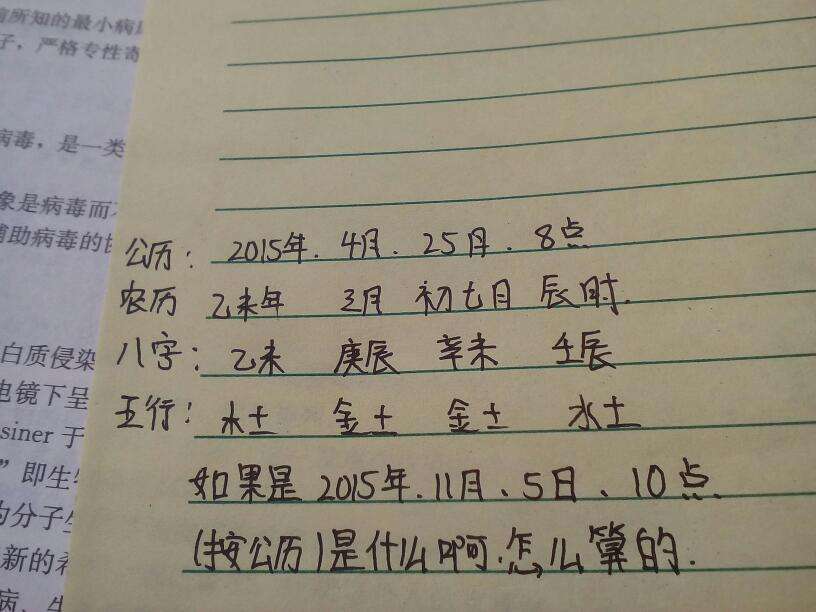 前所知的最小病
子，严格专性寄
病毒，是一类
象是病毒而
辅助病毒的
白质侵染
电镜下呈
siner 于
”即生
为分子生
新的
病、生
公历： 2015年. 4月. 25日. 8点
农历 乙未年 三月 初七日 辰时.
八字： 乙未 庚辰 辛未 壬辰
五行： 木土 金土 金土 水土
如果是 2015年.11月、5日、10点.
（按公历）是什么啊.怎么算的.